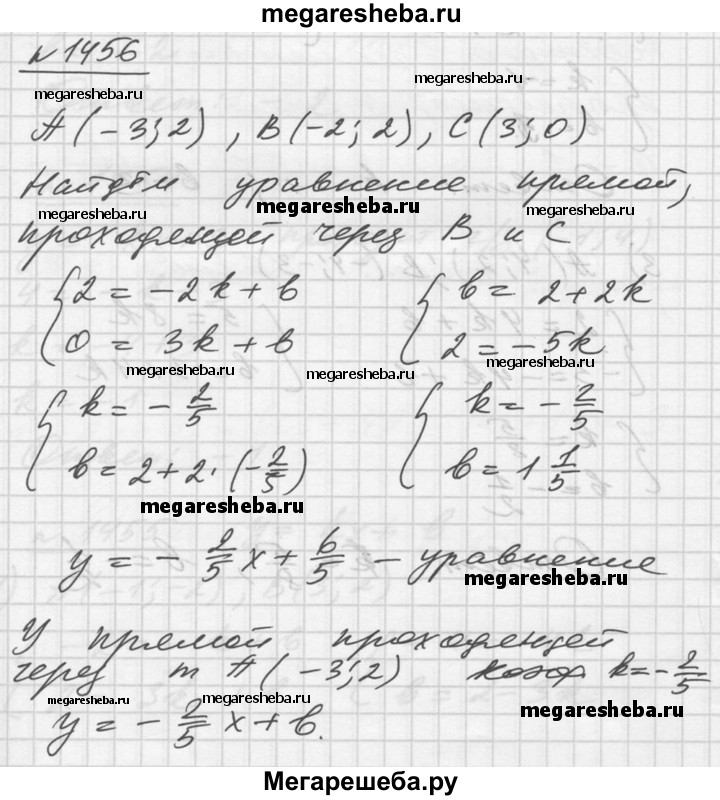 megaresheba.ru
№1456
megaresheba.ru megaresheba.ru
A(-3;2), B(-2;2), C(3;0)
Найдём уравнение прямой,
megaresheba.ru megaresheba.ru megaresheba.ru
проходящей через B и C
{2 = -2k + b {b = 2+2k
{0 = 3k + b {2 = -5k
megaresheba.ru megaresheba.ru megaresheba.ru
{k = -2/5 {k = -2/5
{b = 2+2·(-2/5) {b = 1 1/5
megaresheba.ru megaresheba.ru
y = -2/5 x + 6/5 - уравнение
megaresheba.ru
У прямой проходящей
через т A(-3;2) k = -2/5
megaresheba.ru megaresheba.ru megaresheba.ru
y = -2/5 x + b.
Мегарешеба.ру